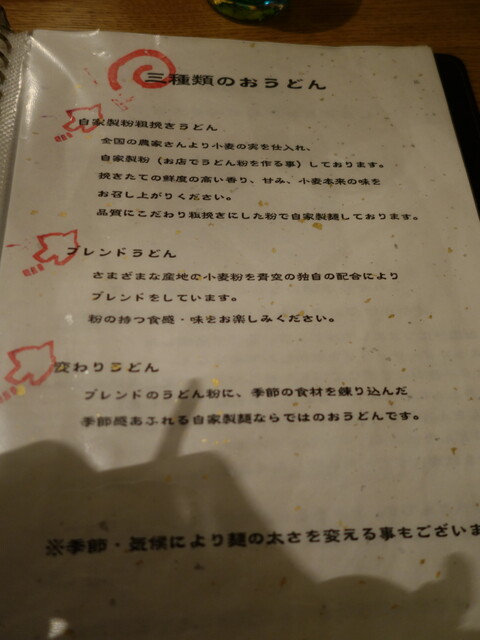 三種類のおうどん
自家製粉粗挽きうどん
全国の農家さんより小麦の実を仕入れ、
自家製粉(お店でうどん粉を作る事)しております。
挽きたての鮮度の高い香り、甘み、小麦本来の味を
お召し上がりください。
品質にこだわり粗挽きにした粉で自家製麺しております。
ブレンドうどん
さまざまな産地の小麦粉を青空の独自の配合により
ブレンドをしています。
粉の持つ食感・味をお楽しみください。
変わりうどん
ブレンドのうどん粉に、季節の食材を練り込んだ
季節感あふれる自家製麺ならではのおうどんです。
※季節・気候により麺の太さを変える事もございま